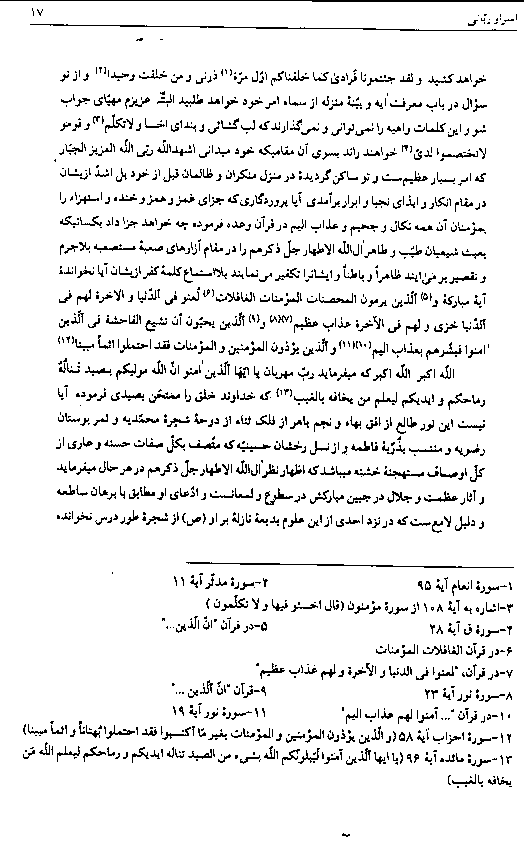 اسرار ربّانی
۱۷
خواهد کشید و لقد جئتمونا فُرادیٰ کما خلقناکم اوّل مرّة(۱) ذرنی و من خلقت وحیداً(۲) و از تو
سؤال در باب معرفت آیه و بیّنهٔ منزله از سماء امر خود خواهد طلبید البتّه عزیزم مهیّای جواب
شو و این کلمات واهیه را نمی‌توانی و نمی‌گذارند که لب گشائی و بندای اخسا و لاتکلّم(۳) و قومو
لاتختصموا لدیّ(۴) خواهند راند بسوی آن مقامیکه خود میدانی اشهدالله ربّی الله العزیز الجبّار
که امر بسیار عظیم‌ست و تو ساکن گردیدهٔ در منزل منکران و ظالمان قبل از خود بل اشدّ ازیشان
در مقام انکار و ایذای نجبا و ابرار برآمدی آیا پروردگاری‌که جزای غمز و همز و خنده و استهزاء را
بمؤمنان آن همه نکال و جحیم و عذاب الیم در قرآن وعده فرموده چه خواهد جزا داد بکسانیکه
بعبث شیعیان طیّب و طاهر آل‌الله الاطهار جلّ ذکرهم را در مقام آزارهای صعبهٔ مستصعبه بلاجرم
و تقصیر بر می‌آیند ظاهراً و باطناً و ایشانرا تکفیر می‌نمایند بلااستماع کلمهٔ کفر ازیشان آیا نخواندهٔ
آیهٔ مبارکهٔ و(۵) الّذین یرمون المحصنات المؤمنات الغافلات(۶) لُعنو فی الدّنیا و الاخرة لهم فی
الدّنیا خزی و لهم فی الآخرة عذاب عظیم(۷)(۸) و(۹) الّذین یحبّون أن تشیع الفاحشة فی الّذین
آمنوا فبشّرهم بعذاب الیم(۱۰)(۱۱) و الّذین یؤذون المؤمنین و المؤمنات فقد احتملوا أثماً مبیناً(۱۲)
الله اکبر الله اکبر که میفرماید ربّ مهربان یا ایّها الّذین آمنوا انّ الله مولیکم بصید تنالهٔ
رماحکم و ایدیکم لیعلم من یخافه بالغیب(۱۳) که خداوند خلق را ممتحن بصیدی فرموده آیا
نیست این نور طالع از افق بهاء و نجم باهر از فلک ثناء از دوحهٔ شجرهٔ محمّدیه و ثمر بوستان
رضویه و منتسب بذُرّیهٔ فاطمه و از نسل رخشان حسینیّه که متّصف بکلّ صفات حسنه و عاری از
کلّ اوصاف مستهجنهٔ خشنه میباشد که اظهار نظر آل الله الاطهار جلّ ذکرهم در هر حال میفرماید
و آثار عظمت و جلال در جبین مبارکش در سطوع و لمعانست و ادّعای او مطابق با برهان ساطعه
و دلیل لامع‌ست که در نزد احدی از این علوم بدیعهٔ نازلهٔ بر او (ص) از شجرهٔ طور درس نخوانده
۱-سورهٔ انعام آیهٔ ۹۵ ۲-سورهٔ مدثّر آیهٔ ۱۱
۳-اشاره به آیهٔ ۱۰۸ از سورهٔ مؤمنون (قال اخسئو فیها و لا تکلّمون)
۴-سورهٔ ق آیهٔ ۲۸ ۵-در قرآن "انّ الّذین..."
۶-در قرآن الغافلات المؤمنات
۷-در قرآن، "لعنوا فی الدنیا و الآخرة و لهم عذاب عظیم"
۸-سورهٔ نور آیهٔ ۲۳ ۹-قرآن "انّ الّذین ..."
۱۰-در قرآن "... آمنوا لهم عذاب الیم" ۱۱-سورهٔ نور آیهٔ ۱۹
۱۲-سورهٔ احزاب آیهٔ ۵۸ (و الّذین یؤذون المؤمنین و المؤمنات بغیر مَا اُکتسبوا فقد احتملوا بُهتاناً و اثماً مبینا)
۱۳-سورهٔ مائده آیهٔ ۹۶ (یا ایها الّذین آمنوا لَیَبلونّکم الله بشیء من الصید تناله ایدیکم و رماحکم لیعلم الله مَن
یخافه بالغیب)